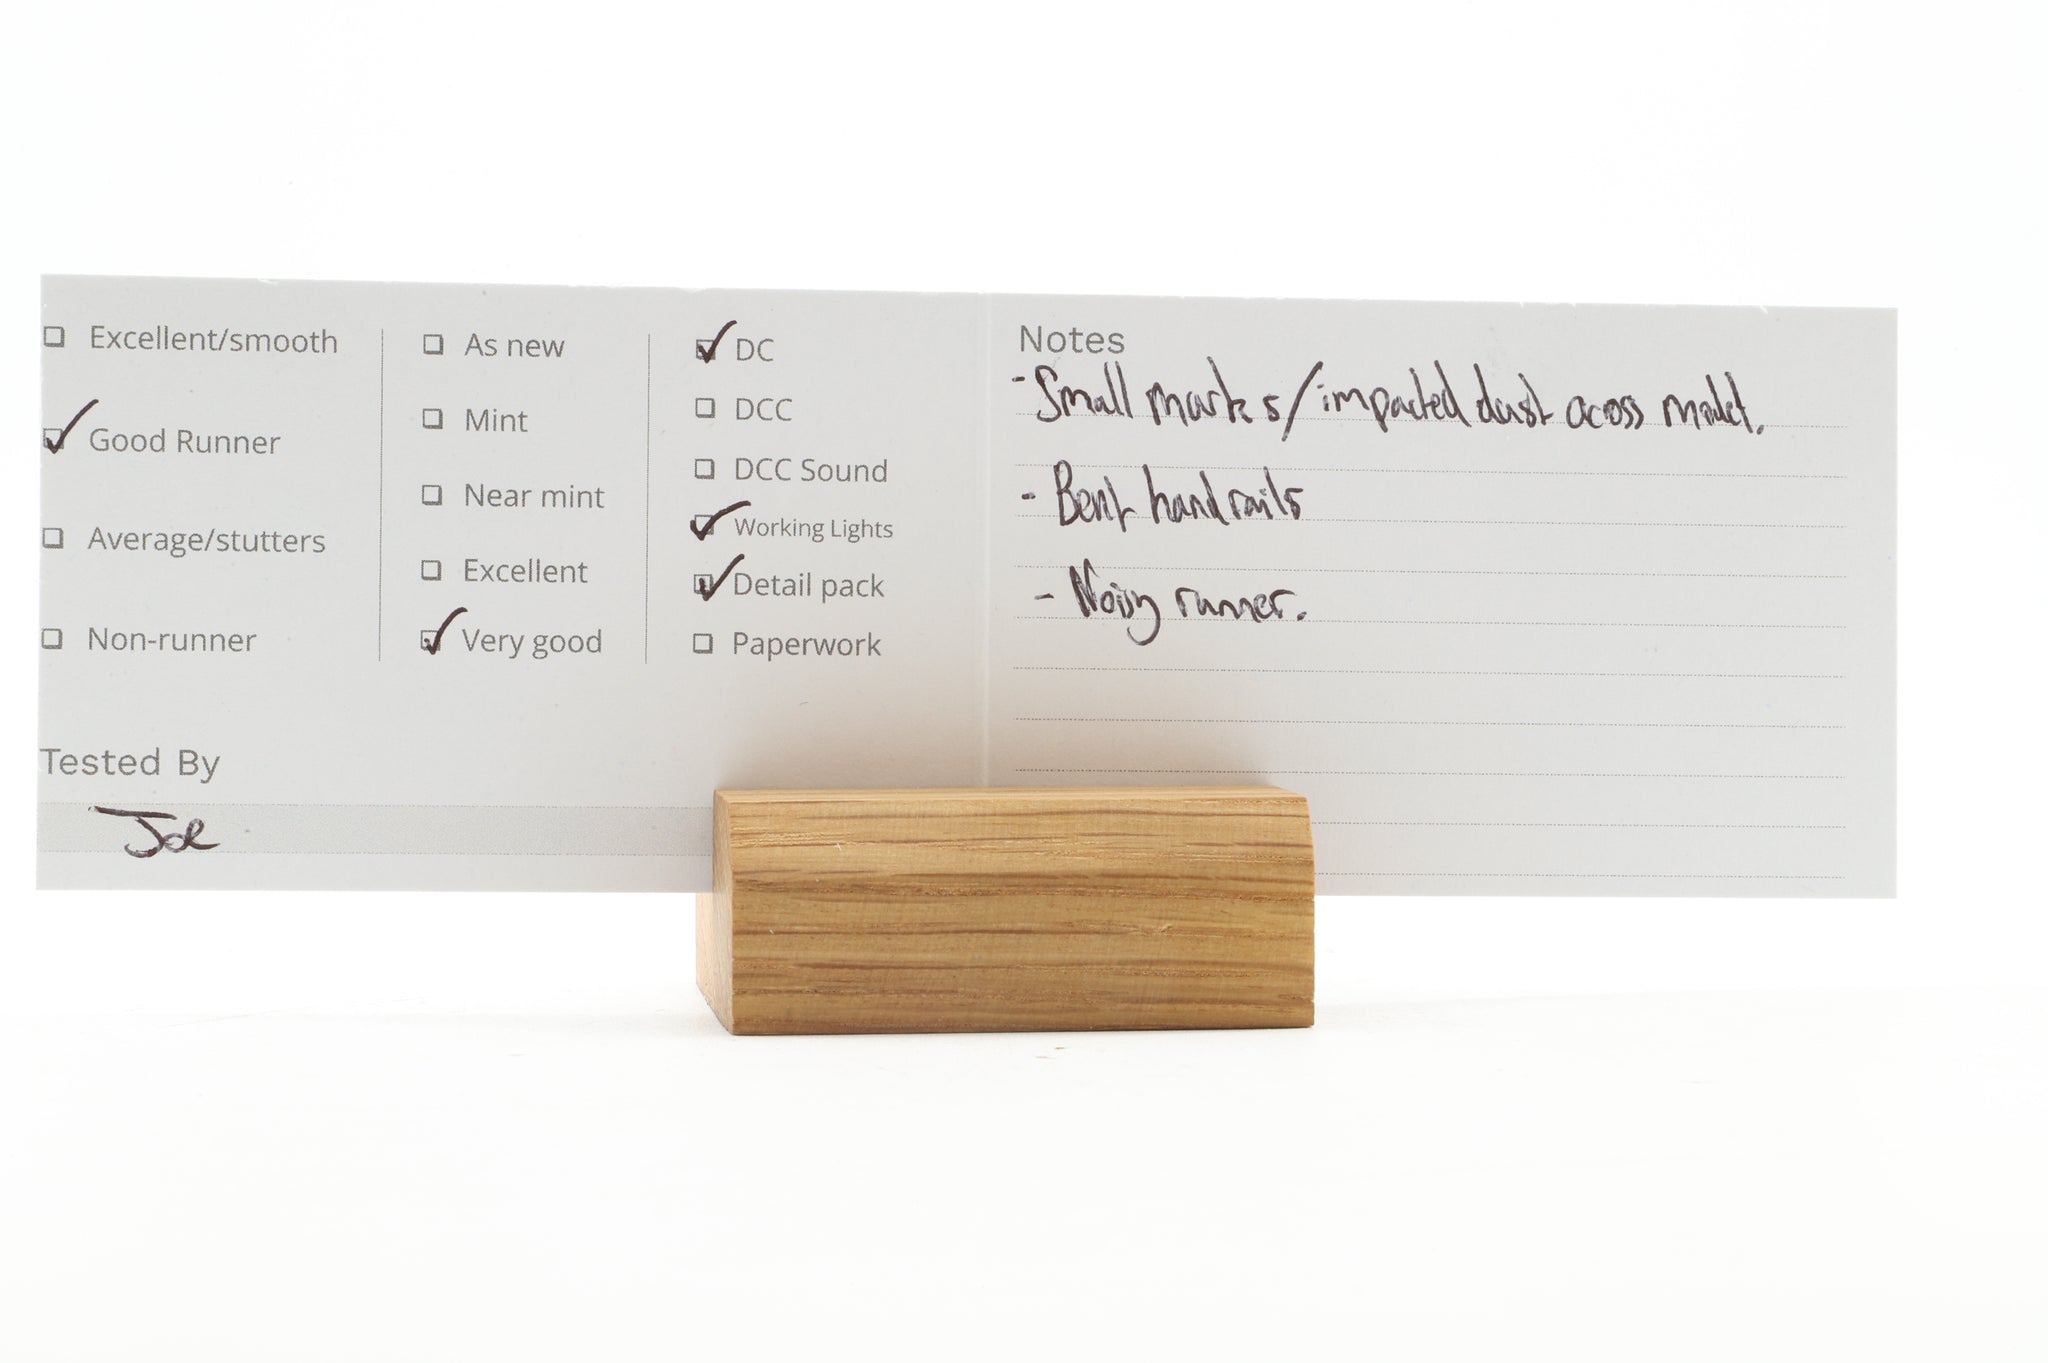 Excellent/smooth
Good Runner
Average/stutters
Non-runner
As new
Mint
Near mint
Excellent
Very good
DC
DCC
DCC Sound
Working Lights
Detail pack
Paperwork
Tested By
Joe
Notes
- Small marks/impacted dust across model.
- Bent handrails
- Noisy runner.